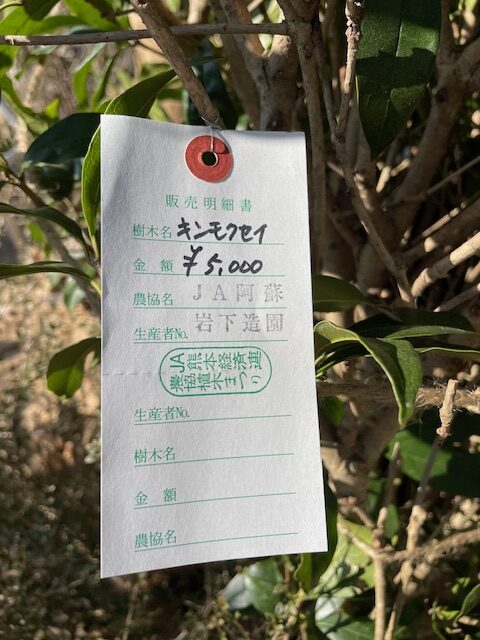 販売明細書
樹木名 キンモクセイ
金額 ¥5,000
農協名 JA阿蘇
生産者No. 岩下造園
JA熊本経済連
農協植木まつり
生産者No.
樹木名
金額
農協名